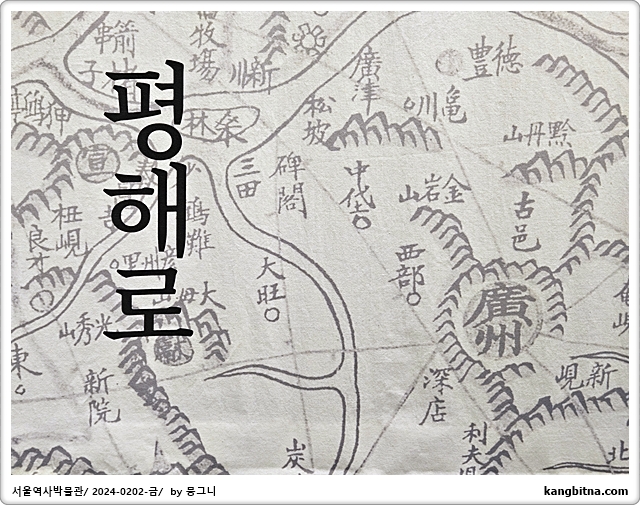 평해로
牧場
新川
廣津
德豊
松坡
龜川
桑林
黔丹山
三田
碑閣
中岱
金岩山
古邑
良才
大旺
西部
廣州
大母山
光秀山
新院
深店
新峴
서울역사박물관/ 2024-0202-금/ by 뭉그니
kangbitna.com